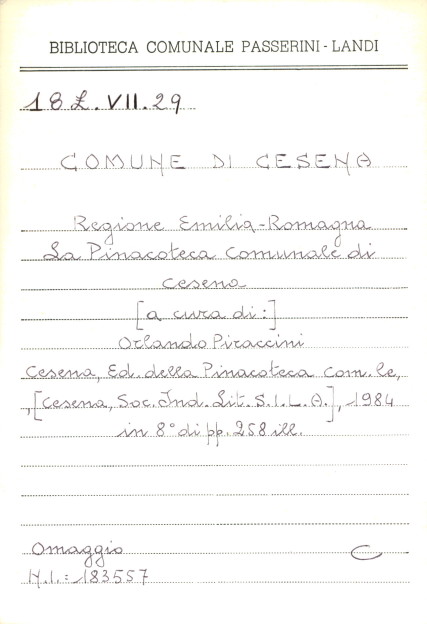 BIBLIOTECA COMUNALE PASSERINI - LANDI
18 L. VII. 29
COMUNE DI CESENA
Regione Emilia-Romagna
La Pinacoteca Comunale di
Cesena
[a cura di:]
Orlando Piraccini
Cesena, Ed. della Pinacoteca Com.le,
,[Cesena, Soc. Ind. Lit. S.I.L.A.], 1984
in 8° di pp. 258 ill.
Omaggio C
N.I.: 183557